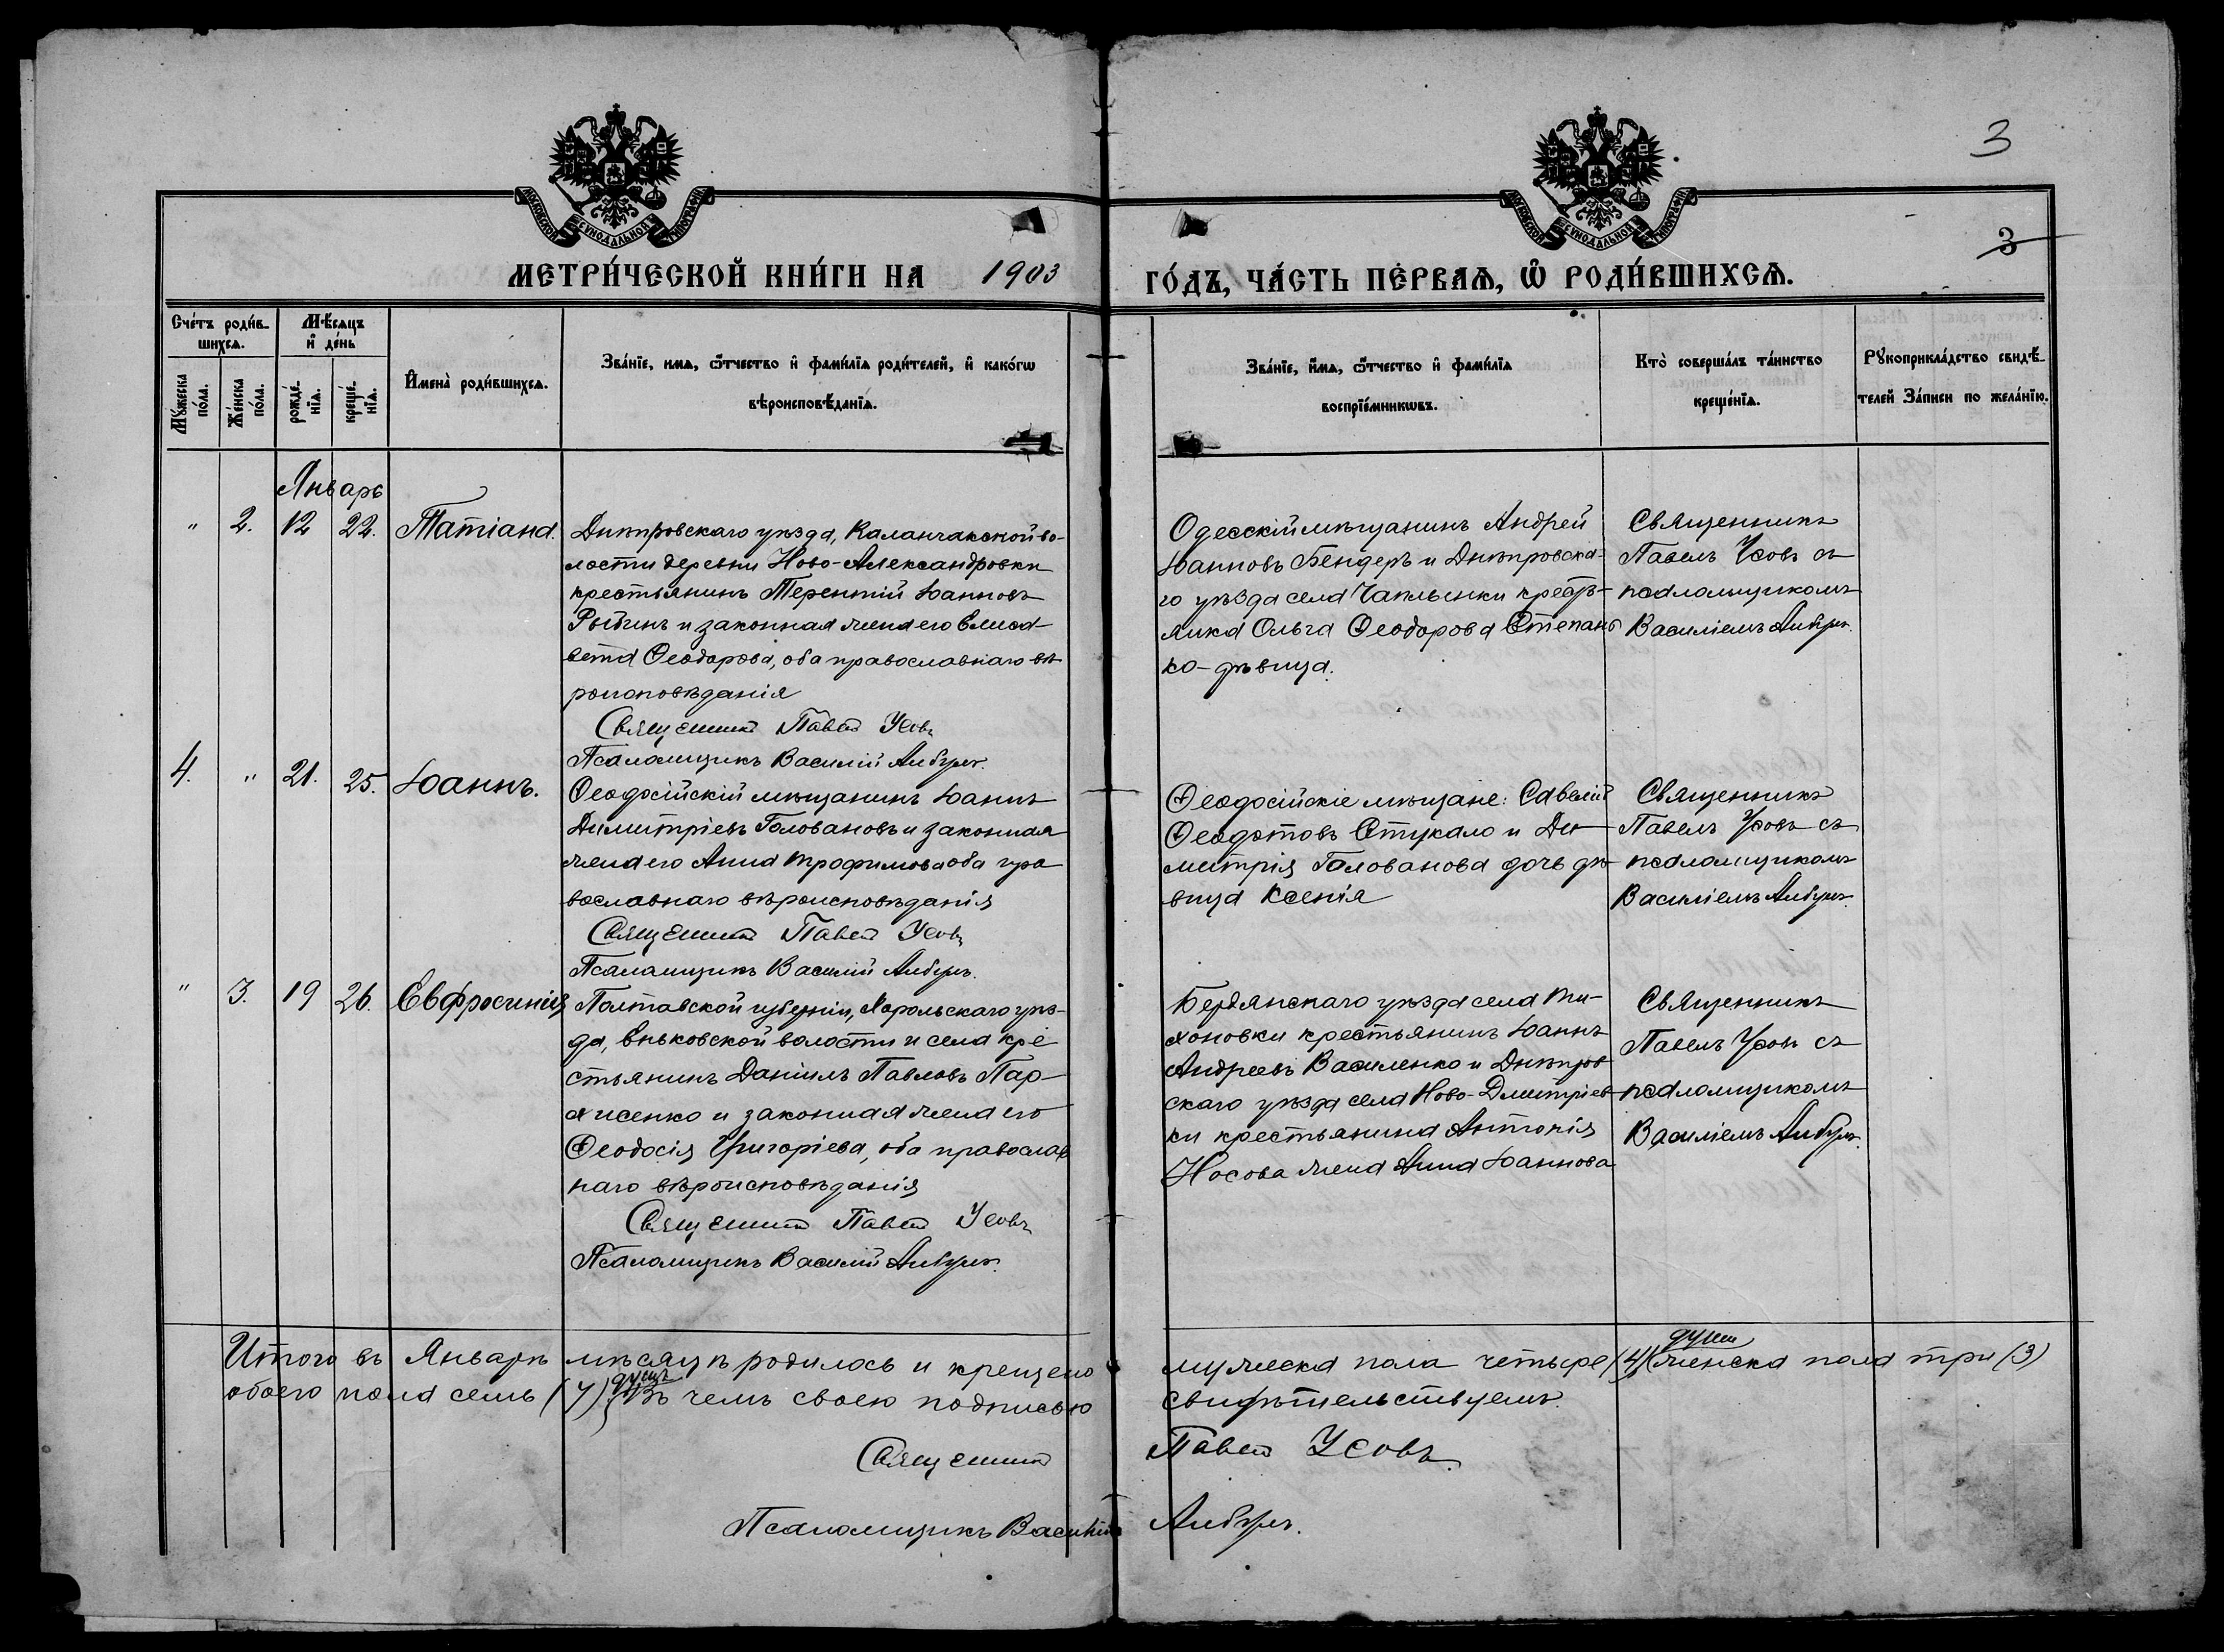 3
МОСКОВСКОЙ СѴНОДАЛЬНОЙ ТИПОГРАФІИ
МОСКОВСКОЙ СѴНОДАЛЬНОЙ ТИПОГРАФІИ
3
МЕТРИ́ЧЕСКОЙ КНИ́ГИ НА 1903 ГО́ДЪ, ЧА́СТЬ ПЕ́РВАѦ, Ѽ РОДИ́ВШИХСѦ.
Сче́тъ роди́в-
шихсѧ.
Мꙋ́жеска по́ла.
Же́нска по́ла.
Мѣ́сѧцъ
и҆ де́нь
рожде́нїѧ.
креще́нїѧ.
И҆мена̀ роди́вшихсѧ.
Зва́нїе, имѧ, ѻ҆́тчество и҆ фами́лїѧ роди́телей, и҆ како́гѡ
вѣроисповѣ́данїѧ.
Зва́нїе, и҆́мѧ, ѻ҆́тчество и҆ фами́лїѧ
воспрїе́мникѡвъ.
Кто̀ соверша́лъ та́инство
креще́нїѧ.
Рꙋкоприкла́дство свидѣ́-
телей За́писи по жела́нїю.
Январь
" 2. 12 22. Татіана.
Днѣпровскаго уѣзда, Каланчакской во-
лости деревни Ново-Александровки
крестьянинъ Терентій Іоанновъ
Рыбинъ и законная жена его Елиса-
вета Ѳеодорова, оба православнаго вѣ-
роисповѣданія
Священникъ Павелъ Усовъ
Псаломщикъ Василій
Одесскій мѣщанинъ Андрей
Іоанновъ Бендеръ и Днѣпровска-
го уѣзда села Чаплынки крестья-
янка Ольга Ѳеодорова Степанен-
ко-дѣвица.
Священникъ
Павелъ Усовъ съ
псаломщикомъ
Василіемъ
4. " 21. 25. Іоаннъ.
Ѳеодосійскій мѣщанинъ Іоаннъ
Димитріевъ Головановъ и законная
жена его Анна Трофимова оба пра
вославнаго вѣроисповѣданія
Священникъ Павелъ Усовъ
Псаломщикъ Василій
Ѳеодосійскіе мѣщане: Савелій
Ѳеодотовъ Стукало и Ди-
митрія Голованова дочь дѣ-
вица Ксенія
Священникъ
Павелъ Усовъ съ
псаломщикомъ
Василіемъ
" 3. 19 26. Евфросинія
Полтавской губерніи, Хорольскаго уѣз-
да, Еньковской волости и села кре
стьянинъ Даніилъ Павловъ Пар-
хисенко и законная жена его
Ѳеодосія Григоріева, оба православ
наго вѣроисповѣданія
Священникъ Павелъ Усовъ
Псаломщикъ Василій
Бердянскаго уѣзда села Ти-
хоновки крестьянинъ Іоаннъ
Андреевъ Василенко и Днѣпров
скаго уѣзда села Ново-Дмитріев-
ки крестьянина Антонія
Носова жена Анна Іоаннова
Священникъ
Павелъ Усовъ съ
псаломщикомъ
Василіемъ
Итого въ Январѣ мѣсяцѣ родилось и крещено мужеска пола четыре (4) души женска пола три (3)
обоего пола семь (7) душъ Въ чемъ своею подписью свидѣтельствуемъ.
Священникъ Павелъ Усовъ
Псаломщикъ Василій